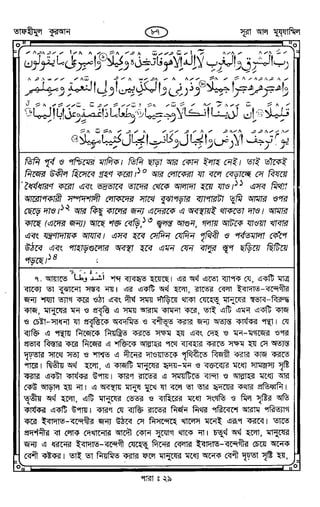 তাফহীমুল কুরআন
৮৭
সূরা আল মুয্‌যাম্মিল
رَبُّ الْمَشْرِقِ وَالْمَغْرِبِ لَا إِلٰهَ إِلَّا هُوَ فَاتَّخِذْهُ وَكِيلًا ۝ وَاصْبِرْ عَلَىٰ مَا يَقُولُونَ
وَاهْجُرْهُمْ هَجْرًا جَمِيلًا ۝ وَذَرْنِي وَالْمُكَذِّبِينَ أُولِي النَّعْمَةِ وَمَهِّلْهُمْ
قَلِيلًا ۝ إِنَّ لَدَيْنَا أَنْكَالًا وَجَحِيمًا ۝ وَطَعَامًا ذَا غُصَّةٍ وَعَذَابًا أَلِيمًا ۝
يَوْمَ تَرْجُفُ الْأَرْضُ وَالْجِبَالُ وَكَانَتِ الْجِبَالُ كَثِيبًا مَهِيلًا ۝
তিনি পূর্ব ও পশ্চিমের মালিক। তিনি ছাড়া আর কোন ইলাহ নেই। তাই তাঁকেই
নিজের উকীল হিসেবে গ্রহণ করো।১০ আর লোকেরা যা বলে বেড়াচ্ছে সে বিষয়ে
ধৈর্যধারণ করো এবং ভদ্রভাবে তাদের থেকে আলাদা হয়ে যাও।১১ এসব মিথ্যা
আরোপকারী সম্পদশালী লোকদের সাথে বুঝাপড়ার ব্যাপারটা তুমি আমার ওপর
ছেড়ে দাও।১২ আর কিছু কালের জন্য এদেরকে এ অবস্থায়ই থাকতে দাও। আমার
কাছে (এদের জন্য) আছে শক্ত বেড়ি,১৩ জ্বলন্ত আগুন, গলায় আটকে যাওয়া খাবার
এবং যন্ত্রণাদায়ক আযাব। এসব হবে সেদিন যেদিন পৃথিবী ও পর্বতমালা কেঁপে
উঠবে এবং পাহাড়গুলোর অবস্থা হবে এমন যেন বালুর স্তূপ ছড়িয়ে ছিটিয়ে
পড়ছে।১৪
৭. আয়াতে أَشَدُّ وَطْئًا শব্দ ব্যবহৃত হয়েছে। এর অর্থ এতো ব্যাপক যে, একটি মাত্র
বাক্যে তা বুঝানো সম্ভব নয়। এর একটি অর্থ হলো, রাতের বেলা ইবাদাত-বন্দেগীর
জন্য শয্যা ত্যাগ করে ওঠা এবং দীর্ঘ সময় দাঁড়িয়ে থাকা যেহেতু মানুষের স্বভাব-বিরুদ্ধ
কাজ, মানুষের মন ও প্রবৃত্তি এ সময় আরাম কামনা করে, তাই এটি এমন একটি কাজ
ও চেষ্টা-সাধনা যা প্রবৃত্তিকে অবদমিত ও বশীভূত করার জন্য অত্যন্ত কার্যকর পন্থা। যে
ব্যক্তি এ পন্থায় নিজেকে নিয়ন্ত্রিত করতে সক্ষম হয় এবং দেহ ও মন-মগজের ওপর
প্রভাব বিস্তার করে নিজের এ শক্তিকে আল্লাহর পথে ব্যবহার করতে সক্ষম হয় সে অত্যন্ত
দৃঢ়তার সাথে সত্য ও শাশ্বত এ দীনের দাওয়াতকে পৃথিবীতে বিজয়ী করার কাজ করতে
পারে। দ্বিতীয় অর্থ হলো, এ কাজটি মানুষের হৃদয়-মন ও বক্তব্যের মধ্যে সামঞ্জস্য সৃষ্টি
করার একটা কার্যকর উপায়। কারণ রাতের এ সময়টিতে বান্দা ও আল্লাহর মধ্যে আর
কেউ আড়াল হয় না। এ অবস্থায় মানুষ মুখে যা বলে তা তার হৃদয়ের কথার প্রতিধ্বনি।
তৃতীয় অর্থ হলো, এটি মানুষের ভেতর ও বাহিরের মধ্যে সংগতি ও মিল সৃষ্টির অতি
কার্যকর একটি উপায়। কারণ যে ব্যক্তি রাতের নির্জন নিথর পরিবেশে আরাম পরিত্যাগ
করে ইবাদাত-বন্দেগীর জন্য উঠবে সে নিঃসন্দেহে খালেস মনেই এরূপ করবে। তাতে
প্রদর্শনীর বা লোক দেখানোর আদৌ কোন সুযোগ থাকে না। চতুর্থ অর্থ হলো, মানুষের
জন্য এ ধরনের ইবাদাত-বন্দেগী যেহেতু দিনের বেলার ইবাদাত-বন্দেগীর চেয়ে অনেক
বেশী কষ্টকর। তাই তা নিয়মিত করার ফলে মানুষের মধ্যে অনেক বেশী দৃঢ়তা সৃষ্টি হয়,
পারা : ২৯